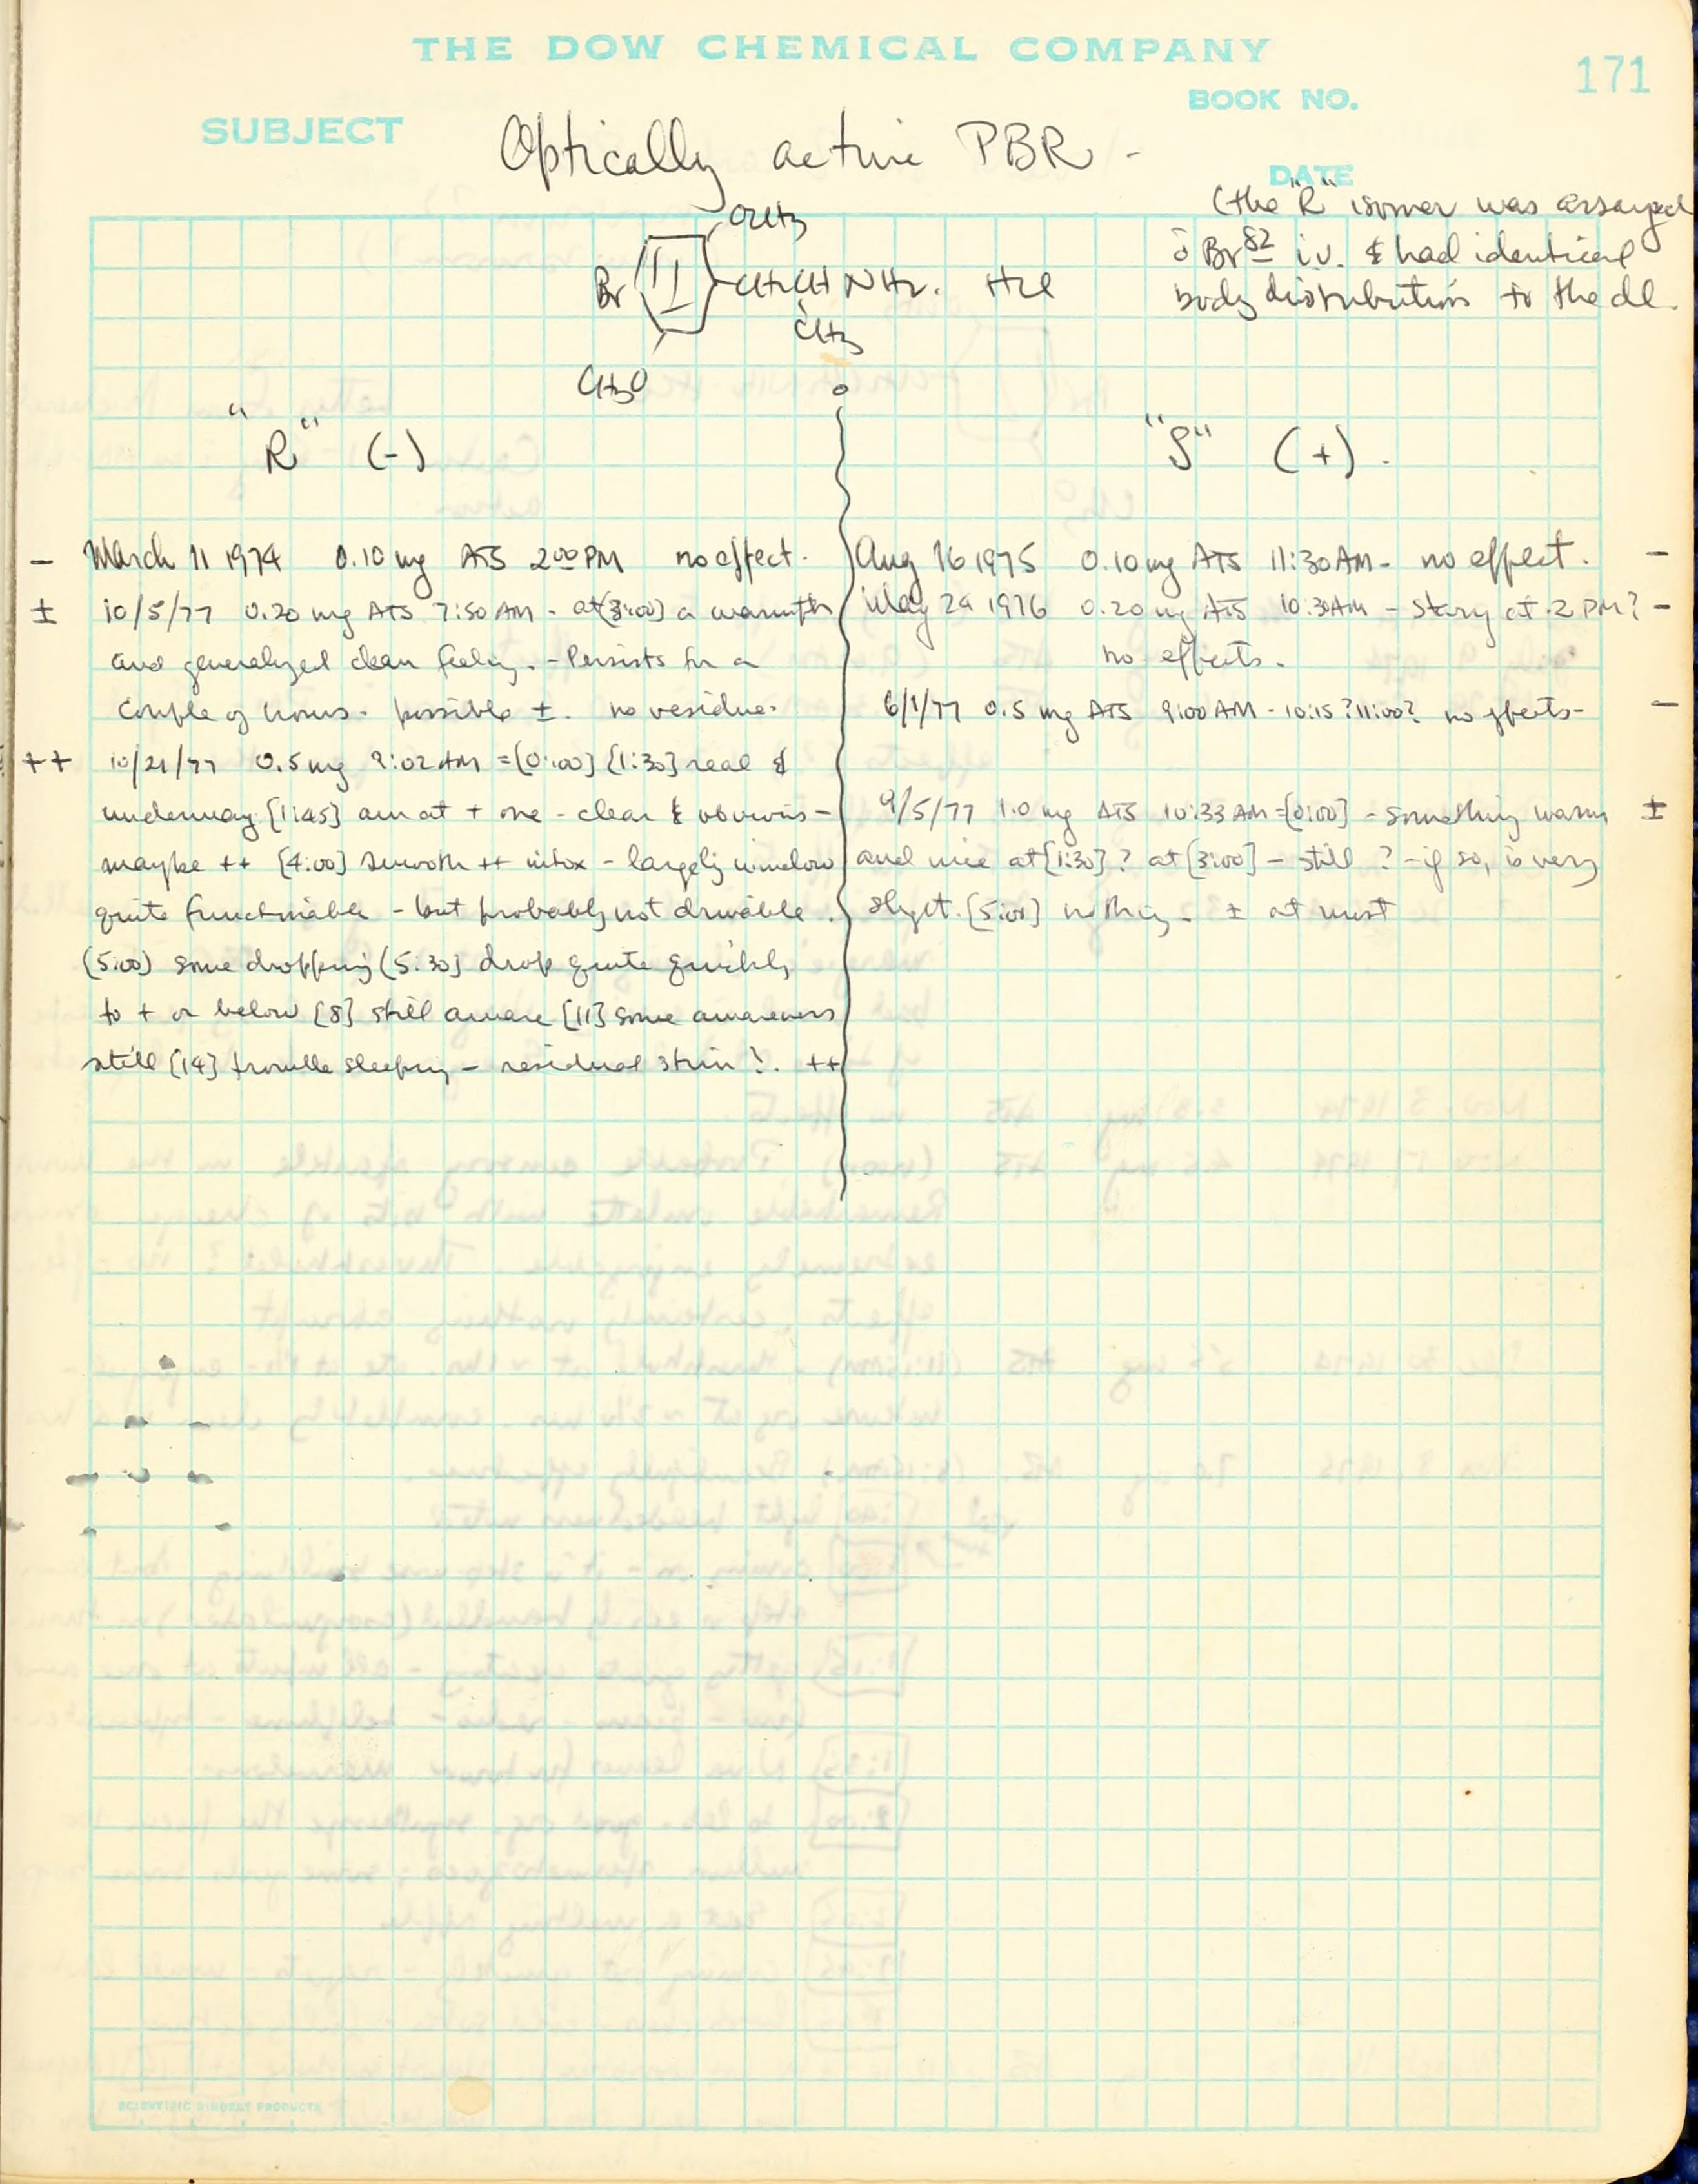 THE DOW CHEMICAL COMPANY
171
BOOK NO.
SUBJECT
Optically active PBR -
DATE
(the "R" isomer was assayed
c̄ Br82 i.v. & had identical
body distribution to the dl.
OCH3
Br CH2CH NH2. HCl
CH3
CH3O
"R" (-)
- March 11 1974 0.10 mg ATS 2:00 PM no effect.
± 10/5/77 0.20 mg ATS 7:50 AM - at (3:00) a warmth
and generalized clean feeling. - Persists for a
couple of hours. possible ±. no residue.
++ 10/21/77 0.5 mg 9:02 AM = [0:00] [1:30] real &
underway [1:45] am at + one - clear & obvious -
maybe ++ [4:00] smooth ++ intox - largely window
quite functionable - but probably not drivable.
(5:00) some dropping (5:30] drop quite quickly
to + or below [8] still aware [11] some awareness
still [14] trouble sleeping - residual stim ?. ++
"S" (+).
Aug 16 1975 0.10 mg ATS 11:30 AM - no effect. -
May 29 1976 0.20 mg ATS 10:30 AM - at 2 PM? -
no effects.
6/1/77 0.5 mg ATS 9:00 AM - 10:15 ? 11:00? no effects - -
9/5/77 1.0 mg ATS 10:33 AM = [0:00] - something warm ±
and nice at [1:30] ? at [3:00] - still ? - if so, is very
slight. [5:00] nothing - ± at most
SCIENTIFIC BINDERY PRODUCTS